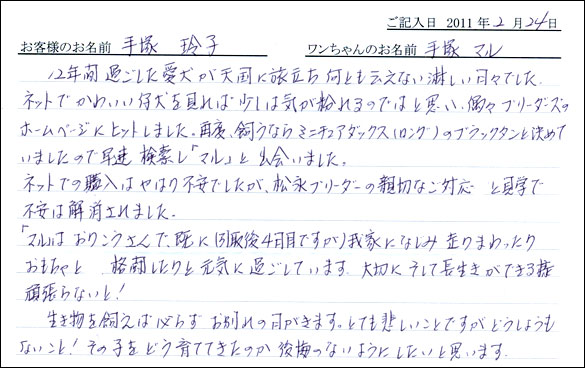 ご記入日 2011年2月24日
お客様のお名前 手塚 玲子 ワンちゃんのお名前 手塚 マル
12年間過ごした愛犬が天国に旅立ち何とも云えない淋しい日々でした。
ネットでかわいい仔犬を見れば少しは気が紛れるのではと思い、偶々ブリーダーズの
ホームページにヒットしました。再度、飼うならミニチュアダックス(ロング)のブラックタンと決めて
いましたので早速 検索し「マル」と出会いました。
ネットでの購入はやはり不安でしたが、松永ブリーダーの親切なご対応 と見学で
不安は解消されました。
「マル」はおりこうさんで、既に(引取後4日目ですが)我家になじみ 走りまわったり
おもちゃと 格闘したりと元気に過ごしています。大切に そして長生きができる様
頑張らないと!
生き物を飼えば必らず お別れの日がきます。とても悲しいことですがどうしようも
ないこと! その子をどう育ててきたのか 後悔のないようにしたいと思います。